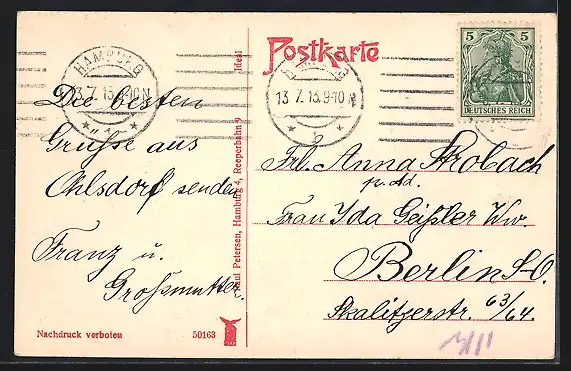 Postkarte
5 5
DEUTSCHES REICH
HAMBURG
13.7.13.9-10N
HAMBURG
13.7.13.9-10N
Die besten
Grüsse aus
Ohlsdorf senden
Franz u.
Grossmutter.
Frl. Anna Strobach
pr. Ad.
Frau Ida Geißler Ww.
Berlin S-O.
Skalitzerstr. 63/64.
Nachdruck verboten
50163
Paul Petersen, Hamburg 4, Reeperbahn
Ideal